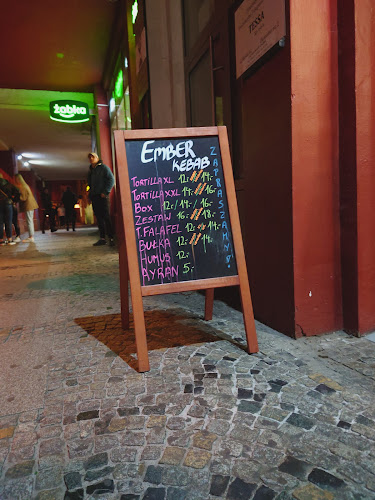 żabka
TESSA
EMBER
KEBAB
TORTILLA XL 12.- // 14.-
TORTILLA XXL 14.- // 16.-
BOX 12.- / 14.- / 16.-
ZESTAW 16.- // 18.-
T. FALAFEL 12.- % 14.-
BUŁKA 12.- // 14.-
HUMUS 12.-
AYRAN 5.-
ZAPRASZAMY!